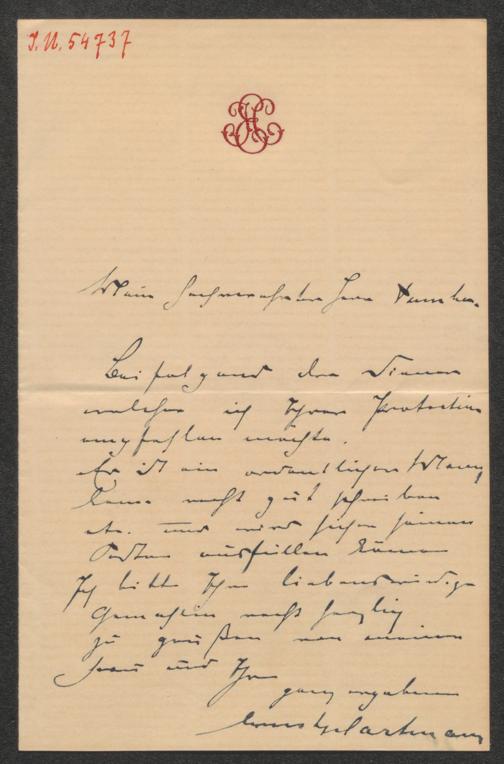 I.N. 54737
Mein hochverehrter Herr
Beifolgend der Diener
welchen ich Ihrer Protection
empfehlen möchte.
Er ist ein ordentlicher Mann,
kann recht gut schreiben
etc. und wird sicher seinen
Posten ausfüllen können
Ich bitte Ihre liebenswürdige
Gemahlin recht herzlich
zu grüßen von meiner
Frau und Ihrem
ganz ergebenen
Ernst Hartmann